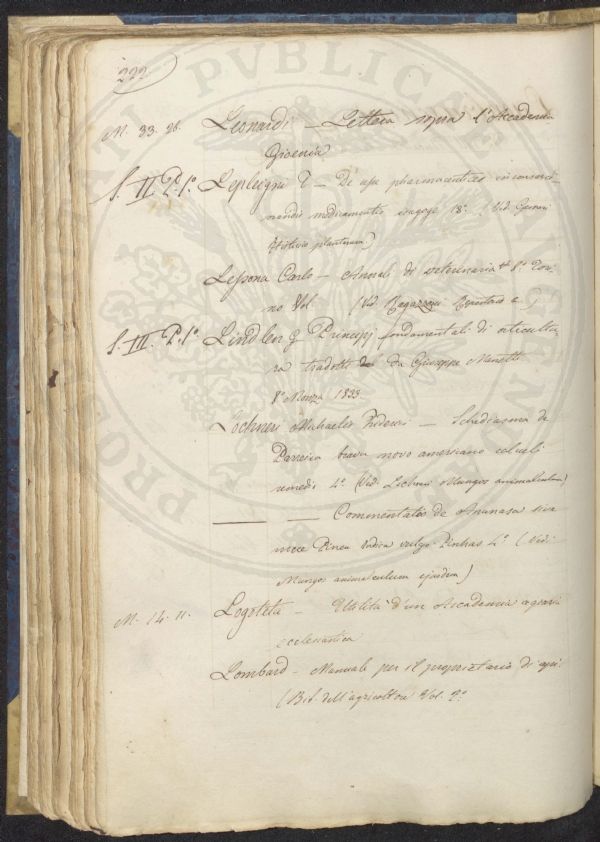 222
M. 33. 26. Leonardi – Lettera sopra l'Accademia
Gioenia
S. II. P. 1º. Leplegni – De usu pharmaceutices in consarci-
nandis medicamentis isagoge 18º (Vid.
Historia plantarum.)
Lessona Carlo – Annali di veterinaria 8º Tori-
no Vol. (Vid. Ragazzoni Repertorio &.)
S. III. P. 1º Lindley G. Principj fondamentali di orticultu-
ra tradotti da Giuseppe Manetti
8º Monza 1833.
Lochneri Michaelis Frideric – Schediasma de
Parreira brava novo americano
remedio 4º (Vid. Lochneri Mungos animalculum)
—— —— Commentatio de Ananasa sive
nuce Pinea Indica vulgo Pinhas 4º (Vedi
Mungos animalculum ejusdem)
M. 14. 11. Logoteta – Utilità d'un Accademia agraria
ecclesiastica
Lombard – Manuale per il proprietario di api
(Bib. dell'agricoltore Vol. 2º
PROBITATI PUBLICAE